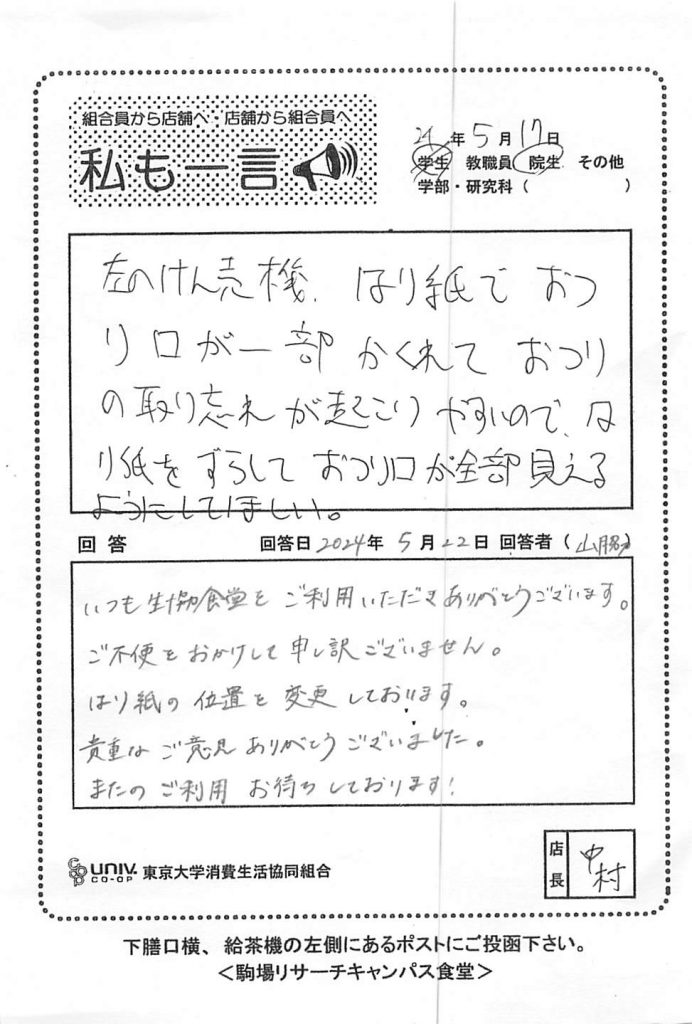 組合員から店舗へ・店舗から組合員へ
私も一言
24年5月17日
学生 教職員 院生 その他
学部・研究科( )
左のけん売機、はり紙で おつ
り口が一部 かくれて おつり
の取り忘れ が起こり やすいので、は
り紙を ずらして おつり口が全部見える
ようにしてほしい。
回答 回答日2024年5月22日 回答者(山勝)
いつも生協食堂を ご利用いただき ありがとうございます。
ご不便を おかけして 申し訳ございません。
はり紙の 位置を 変更しております。
貴重な ご意見 ありがとう ございました。
またの ご利用 お待ちしております!
UNIV. CO-OP 東京大学消費生活協同組合
店長 中村
下膳口横、給茶機の左側にあるポストにご投函下さい。
<駒場リサーチキャンパス食堂>